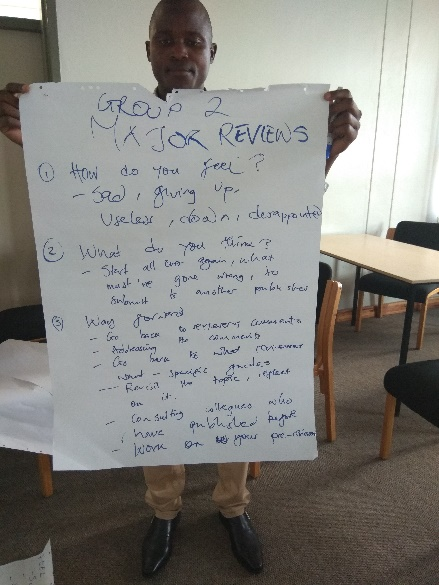 GROUP 2
MAJOR REVIEWS
① How do you feel?
- Sad, giving up,
Useless, down, disappointed
② What do you think?
- Start all over again, what
must've gone wrong, to
submit to another publisher
③ Way forward
- Go back to reviewers comments
- Addressing the comments
- Go back to what reviewer
want - specific
- Revisit the topic, reflect
on it.
- Consulting collegues who
have published
- Work on your